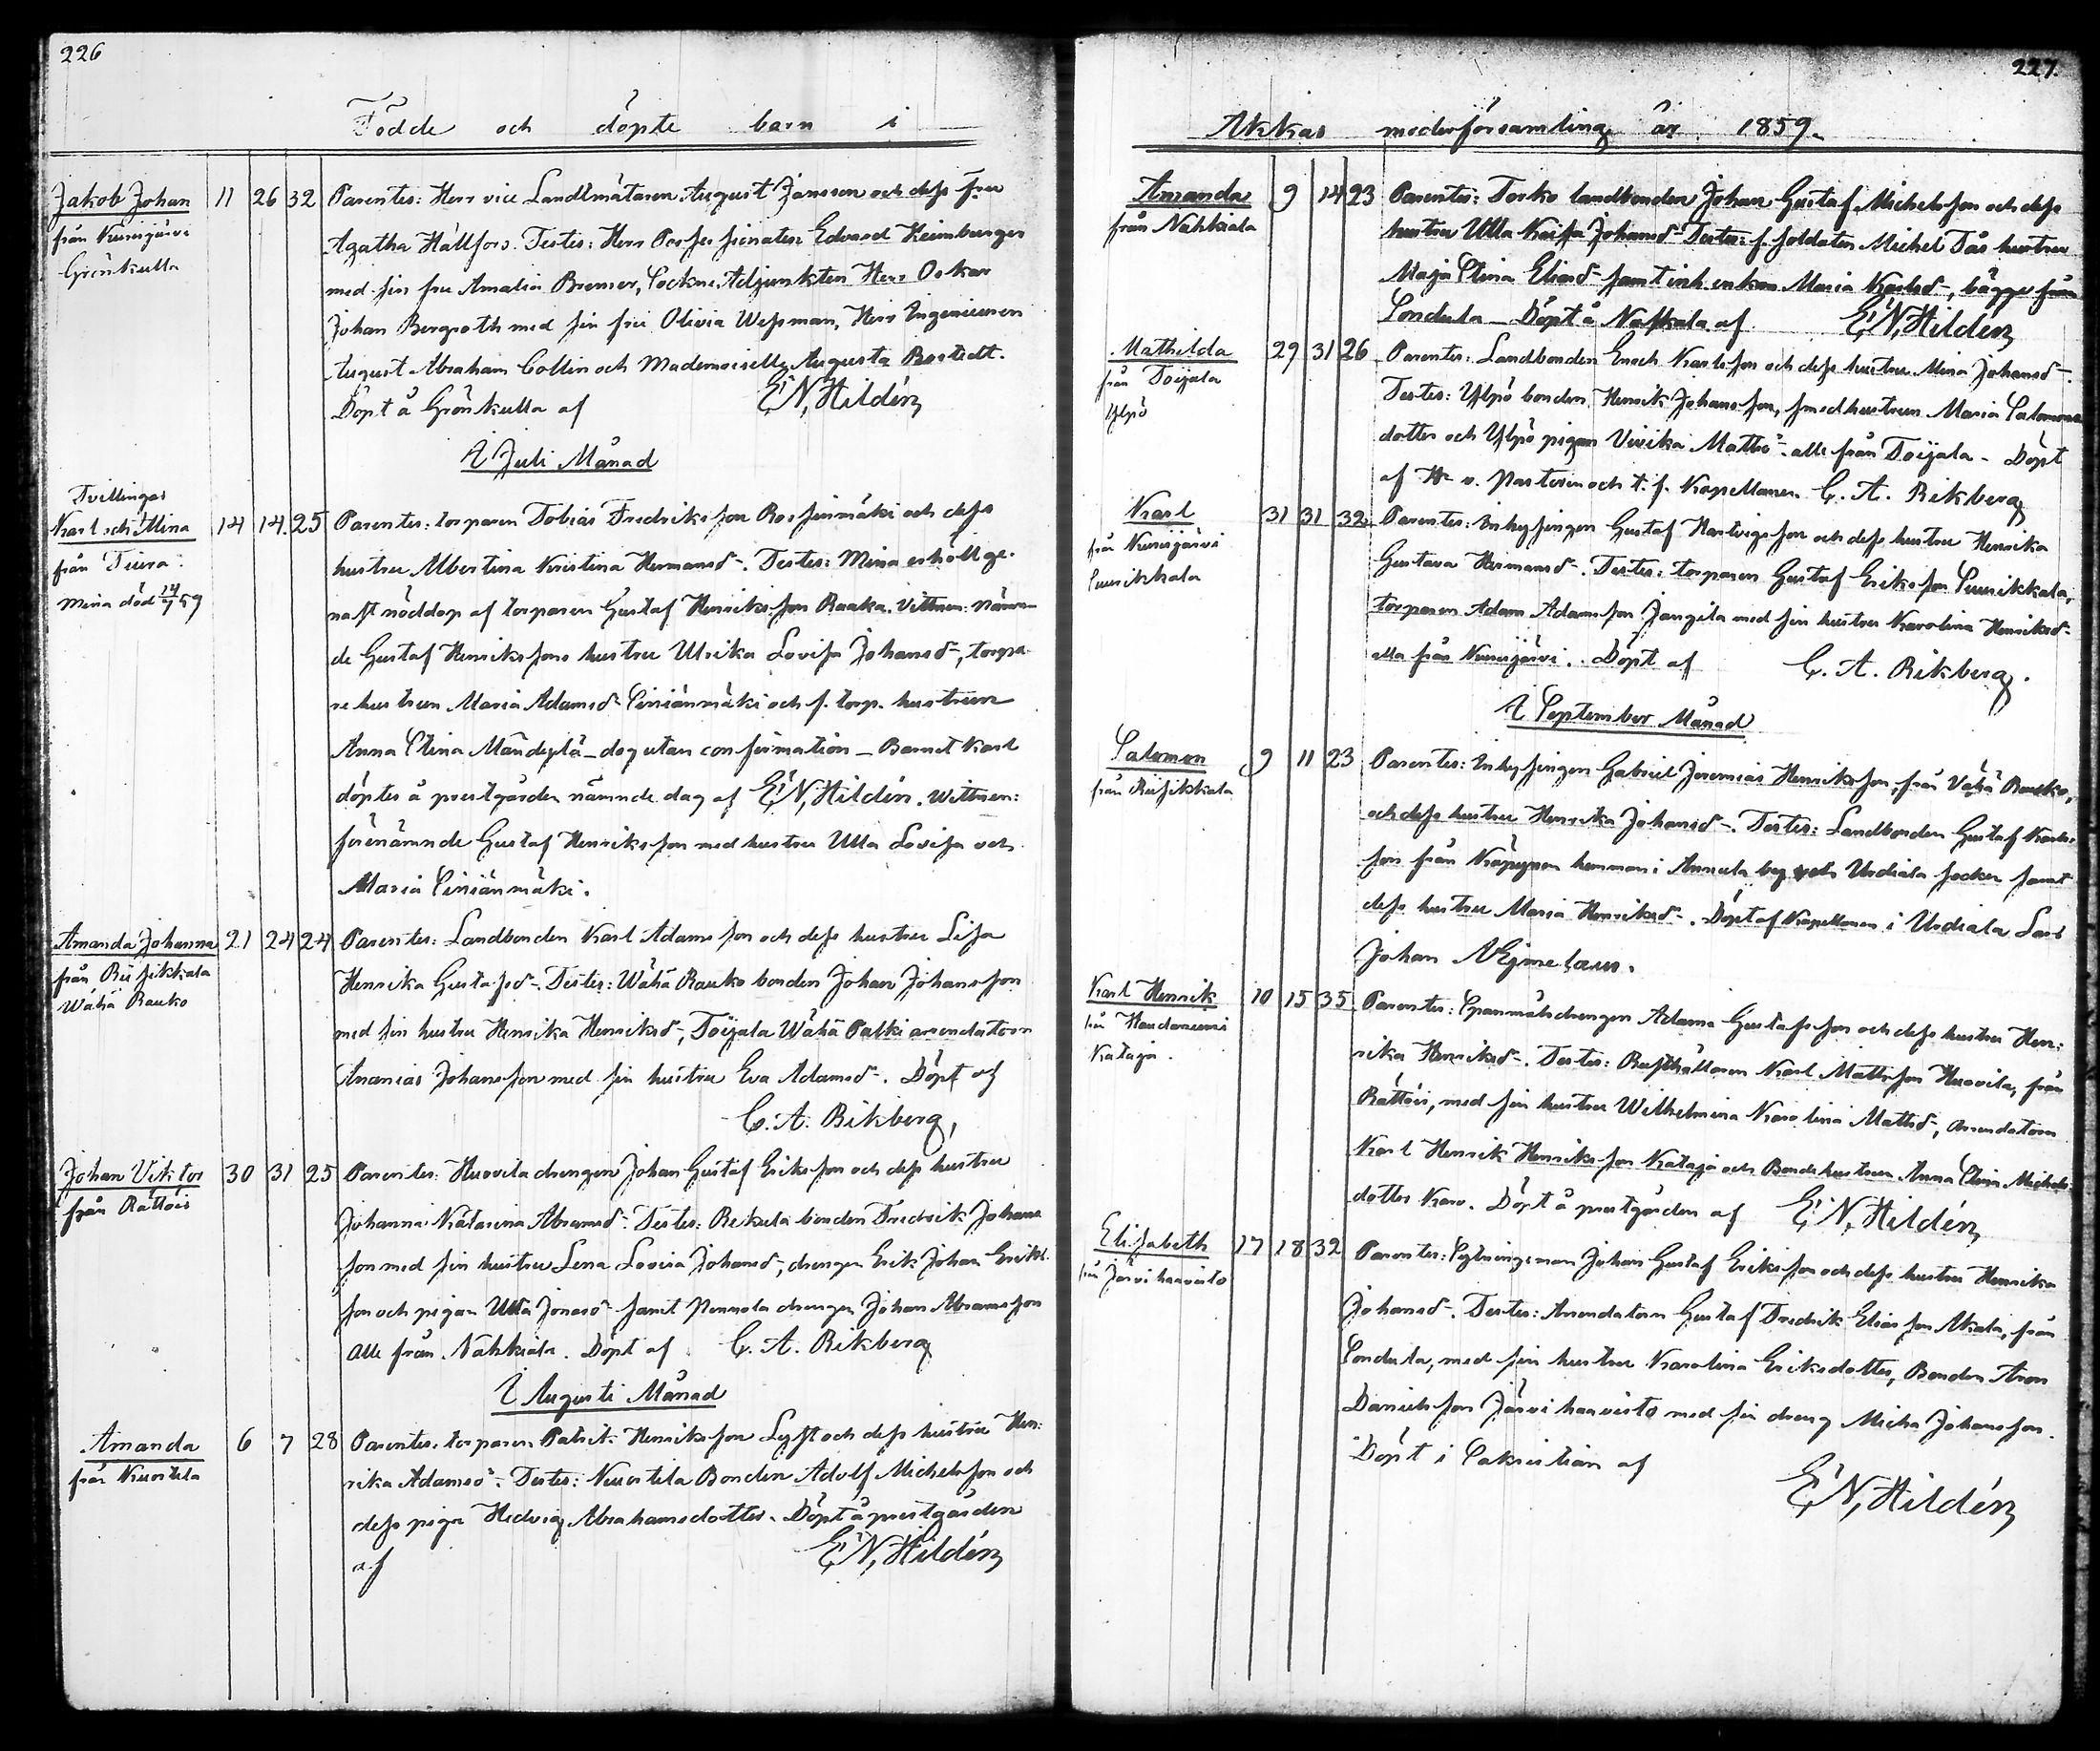 226
Födde och döpte barn i
Jakob Johan 11 26 32 Parentes: Herr vice Landtmätaren August Jansson och dess fru
från Kurisjärvi Agatha Hällfors. Testes: Herr Possessionaten Edvard Heimburger
Grönkulla med sin fru Amalia Bremer, Sockne Adjunkten Herr Oskar
Johan Bergroth med sin fru Olivia Wessman, Herr Ingenieuren
August Abraham Collin och Mademoiselle Augusta Bostedt.
Döpt å Grönkulla af E. N. Hildén
I Juli Månad
Tvillingar
Karl och Mina 14 14. 25 Parentes: torparen Tobias Fredriksson Rossinmäki och dess
från Tiura. hustru Albertina Kristina Hermansd-. Testes: Mina erhöll ge-
Mina död 14/7 59 nast nöddop af torparen Gustaf Henriksson Rauka. Vittnen: nämn-
de Gustaf Henrikssons hustru Ulrika Lovisa Johansd-, torpa-
rehustrun Maria Adamsd- Siniänmäki och f. torp. hustrun
Anna Stina Mändylä - dog utan confirmation - Barnet Karl
döptes å prestgården nämnde dag af E. N. Hildén. Wittnen:
förenämnde Gustaf Henriksson med hustru Ulla Lovisa och
Maria Siniänmäki.
Amanda Johanna 21 24 24 Parentes: Landbonden Karl Adamsson och dess hustru Lisa
från Riisikkala Henrika Gustafsd-. Testes: Wähä Rauko bonden Johan Johansson
Wähä Rauko med sin hustru Henrika Henriksd-, Toijala Wähä Palki arrendatorn
Ananias Johansson med sin hustru Eva Adamsd-. Döpt af
C. A. Rikberg,
Johan Viktor 30 31 25 Parentes: Huovila drengen Johan Gustaf Eriksson och dess hustru
från Rättöis Johanna Katarina Abramsd-. Testes: Reikula bonden Fredrik Johans-
son med sin hustru Lena Lovisa Johansd-, drengen Erik Johan Eriks-
son och pigan Ulla Jonasd- samt Pennola drengen Johan Abramsson
alle från Nahkiala. Döpt af C. A. Rikberg
I Augusti Månad
Amanda 6 7 28 Parentes: torparen Patrik Henriksson Lyyst och dess hustru Hen-
från Kurvola rika Adamsd-. Testes: Nuortila Bonden Adolf Michelsson och
dess piga Hedvig Abrahamsdotter. Döpt å prestgården
af E. N. Hildén
227.
Akkas moderförsamling år 1859.
Amanda 9 14 23 Parentes: Torko landbonden Johan Gustaf Michelsson och dess
från Nahkiala hustru Ulla Kaisa Johansd- Testes: f. soldaten Michel Tås hustru
Maja Stina Eliasd- samt inh. enkan Maria Karlsd-, bägge från
Sondula - Döpt å Nahkiala af E. N. Hildén
Mathilda 29 31 26 Parentes: Landbonden Enoch Karlsson och dess hustru Mina Johansd-.
från Toijala Testes: Ylpö bonden Henrik Johansson, med hustrun Maria Salomons-
Ylpö dotter och Ylpö pigan Vivika Mattsd- alle från Toijala - Döpt
af Hr v. Pastorn och t. f. Kapellanen C. A. Rikberg
Karl 31 31 32 Parentes: Inhysingen Gustaf Hartvigsson och dess hustru Henrika
från Kurisjärvi Gustava Hermansd-. Testes: torparen Gustaf Eriksson Suurikkala,
Suurikkala torparen Adam Adamsson Jangila med sin hustru Karolina Henriksd-
alla från Kurisjärvi. Döpt af C. A. Rikberg.
I September Månad
Salomon 9 11 23 Parentes: Inhysingen Gabriel Jeremias Henriksson, från Vähä Rauko,
från Riisikkala och dess hustru Henrika Johansd-. Testes: Landbonden Gustaf Karls-
son från hemman i Annula by och Urdiala socken samt
dess hustru Maria Henriksd-. Döpt af Kapellanen i Urdiala Lars
Johan Ægimelæus.
Karl Henrik 10 15 35 Parentes: Spanmålsdrengen Adam Gustafsson och dess hustru Hen-
från Haudaniemi rika Henriksd-. Testes: Rusthållaren Karl Mattsson Huovila, från
Kataja. Rättöis, med sin hustru Wilhelmina Karolina Mattsd-, arrendatorn
Karl Henrik Henriksson Kataja och Bondehustrun Anna Stina Michels-
dotter Karo. Döpt å prestgården af E. N. Hildén
Elisabeth 17 18 32 Parentes: Sytningsman Johan Gustaf Eriksson och dess hustru Henrika
från Järvihaavisto Johansd-. Testes: Arrendatorn Gustaf Fredrik Eliasson Akala, från
Sondula, med sin hustru Karolina Eriksdotter, Bonden Aron
Danielsson Järvihaavisto med sin dreng Micha Johansson.
Döpt i Sakristian af E. N. Hildén